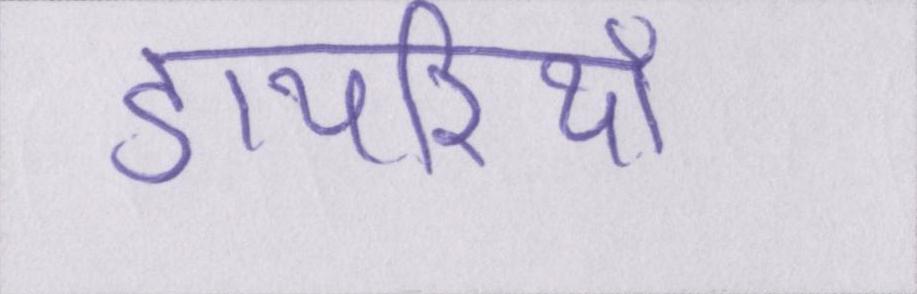 डायरियाँ